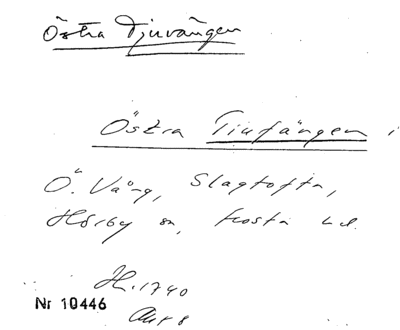 Östra Tjuvängen
Östra Tiufängen i
Ö. Väng, Slagtofta,
Hörby sn, Frosta hd.
H. 1740
Akt 8
Nr 10446